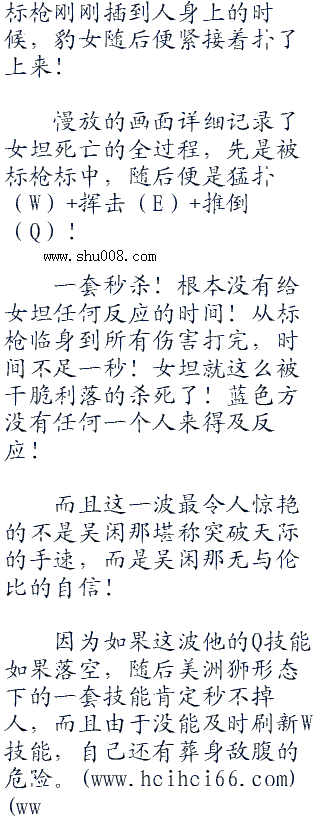 标枪刚刚插到人身上的时
候，豹女随后便紧接着扑了
上来！
漫放的画面详细记录了
女坦死亡的全过程，先是被
标枪标中，随后便是猛扑
（W）+挥击（E）+推倒
（Q）！
www.shu008.com
一套秒杀！根本没有给
女坦任何反应的时间！从标
枪临身到所有伤害打完，时
间不足一秒！女坦就这么被
干脆利落的杀死了！蓝色方
没有任何一个人来得及反
应！
而且这一波最令人惊艳
的不是吴闲那堪称突破天际
的手速，而是吴闲那无与伦
比的自信！
因为如果这波他的Q技能
如果落空，随后美洲狮形态
下的一套技能肯定秒不掉
人，而且由于没能及时刷新W
技能，自己还有葬身敌腹的
危险。(www.hcihci66.com)
(ww